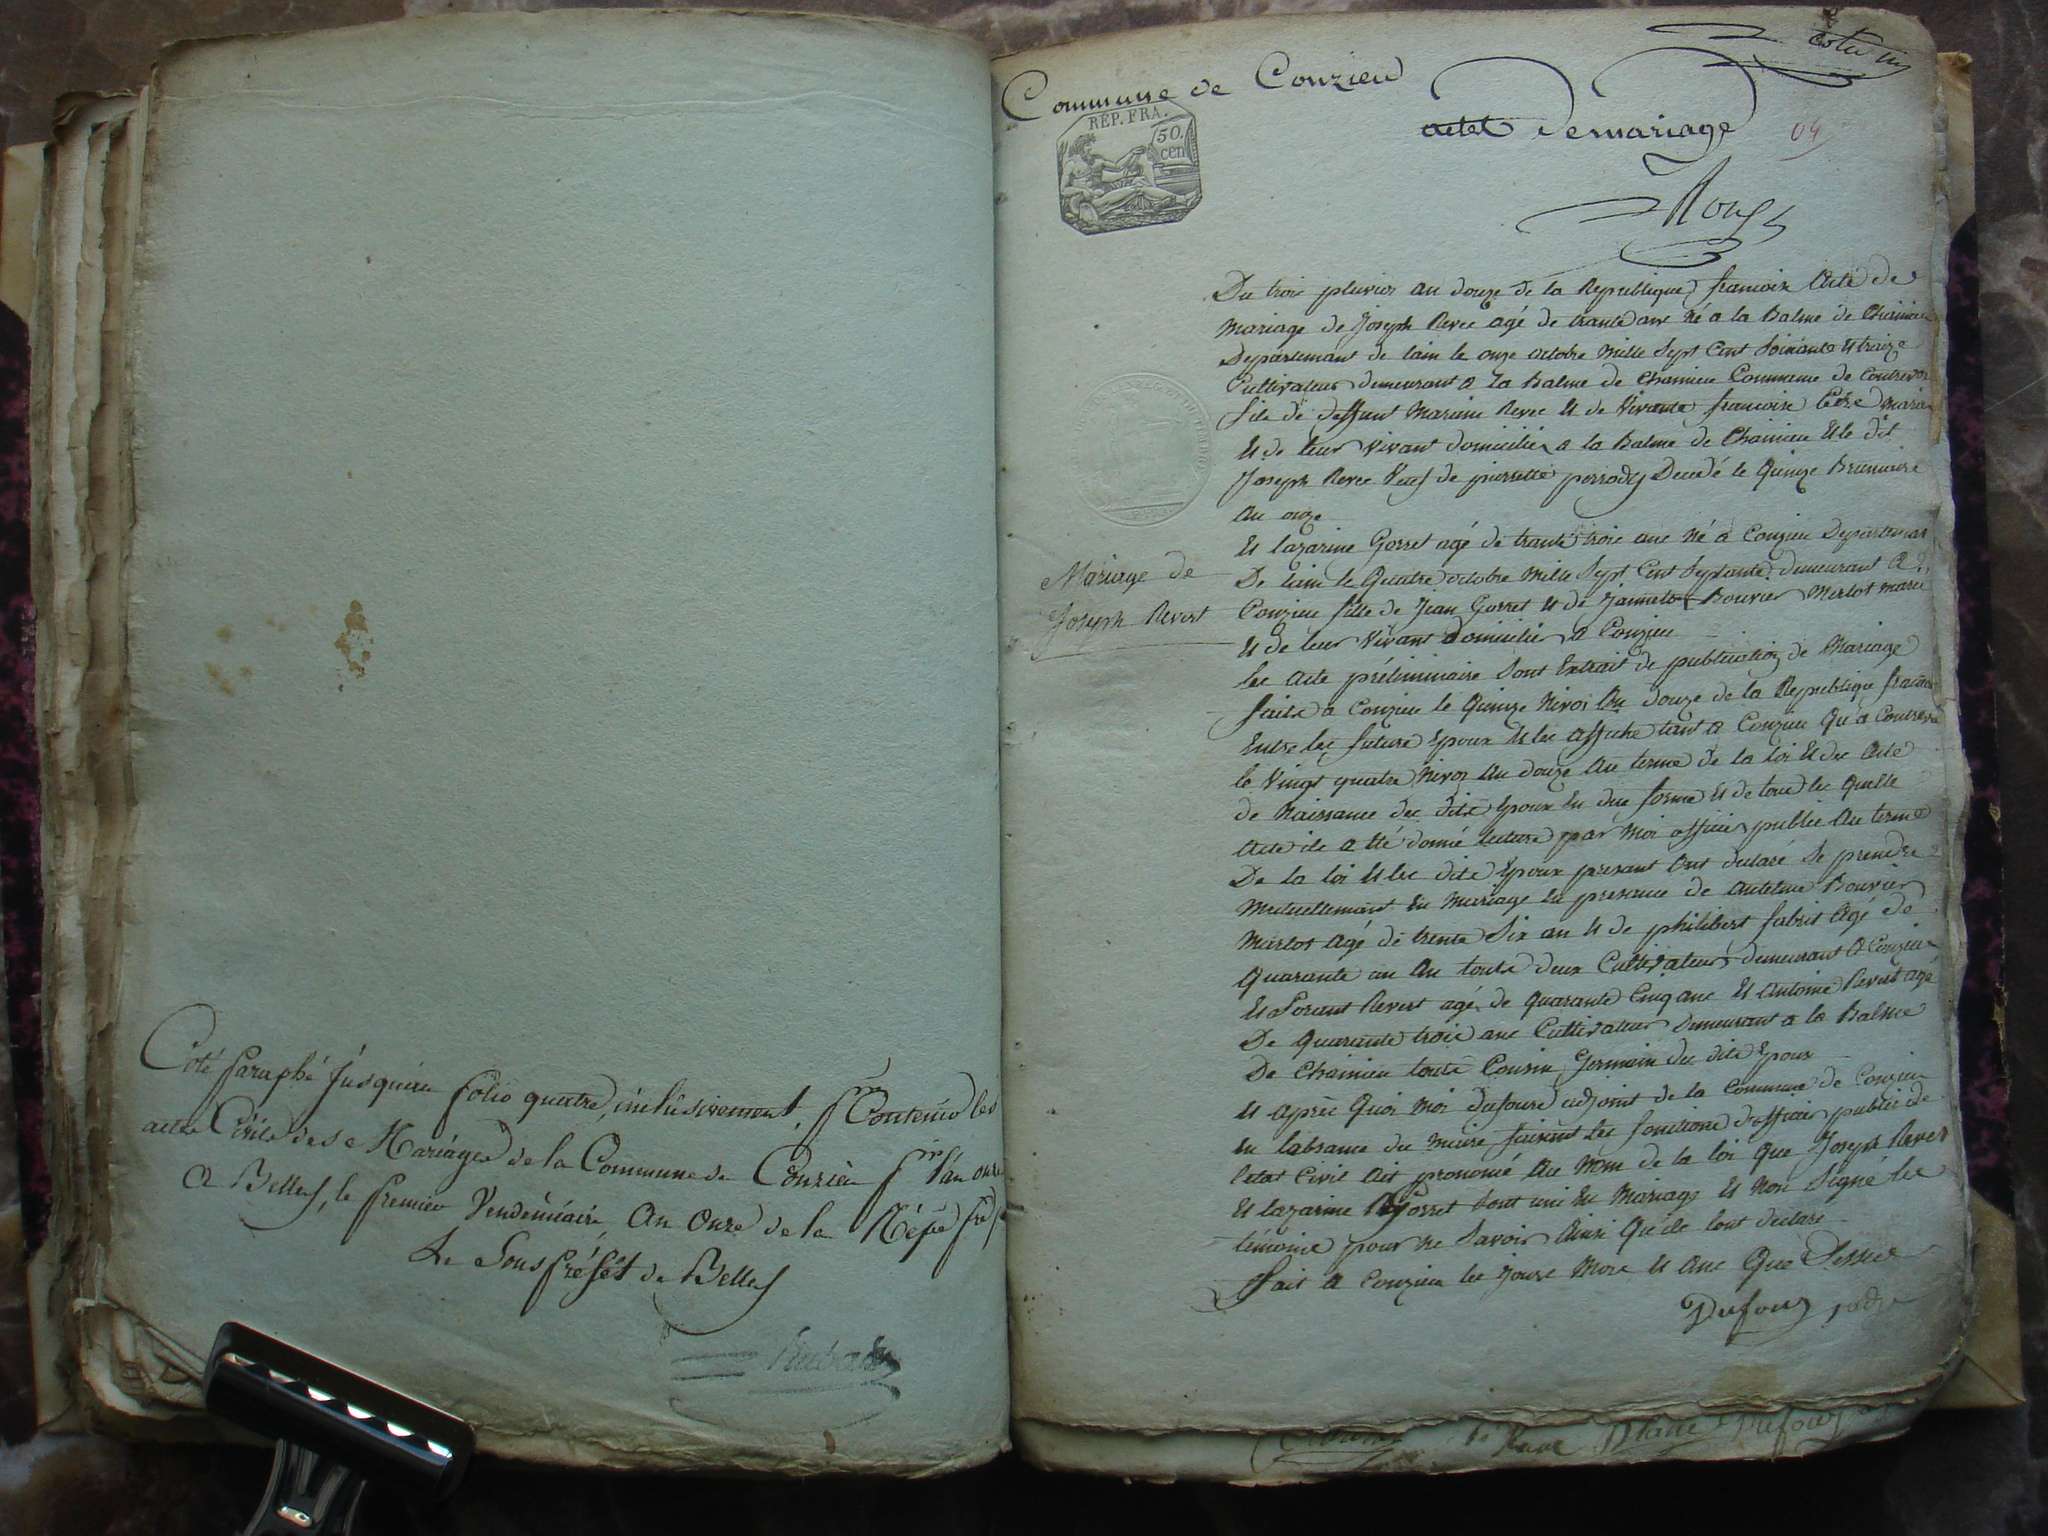 Coté paraphé jusques au folio quatre, inclusivement, pr Contenir les
actes Civils des Mariages de la Commune de Conzieu pr l'an onze
A Belley, le premier Vendemiaire, An Onze de la Répue fre
Le Sous préfét de Belley
Commune de Conzieu
REP. FRA.
50.
cen
actet De mariage
09
Mariage de
Joseph Revert
Du trois pluvios an douze de la Republique francoix Acte de
Mariage de Joseph Revec agé de trante ans né a la Balme de Chainieu
Departemant de lain le onze octobre Mille Sept Cent Soixante et traize
Cultivateur demeurant a la Balme de Chainieu Commeme de Contrevoz
fils de deffunt Marain Revec et de Vivante francoise marie
et de leur Vivant domicilies a la Balme de Chainieu et le dit
Joseph Revec Veuf de pierrette perrody Decedé le Quinze Brumaire
an onze
et lazarine Gorret agé de trante trois anc né a Conzieu Departemant
De lain le Quatre octobre Mille Sept Cent Septante demeurant a
Conzieu fille de Jean Gorret et de Jannete Bouvier Merlot marié
et de leur Vivant domicilier a Conzieu
lec acte préliminaire Sont Extrait de publication de Mariage
faite a Conzieu le Quinze Nivos an douze de la Republique
Entre lec future Epoux et lec affiche tant a Conzieu Qu'a Contrevoz
le Vingt quatre Nivos an douze au terme de la loi et dec acte
de Naissance dec dite Epoux En due forme et de tout lec Quelle
acte ila a Eté donné lecture par Moi officier public au terme
De la loi et lec dite Epoux presant ont declaré Se prendre
Mutuellemant En Mariage En presance de antelme Bouvier
Marlot agé de trente Six an et de philibert fabrit agé de
Quarante un an toute deux Cultivateur demeurant a Conzieu
et Revert agé de Quarante Cinq anc et antoine Revert agé
De Quarante trois anc Cultivateur demeurant a la Balme
De Chainieu toute Cousin Germain dec dite Epoux
et aprèc Quoi Moi dufour adjoint de la Commune de Conzieu
En labsance du Maire faisant lec fonctions d'officier public de
letat Civil ait prononcé au Nom de la loi que Joseph Revert
et lazarine Gorret Sont uni En Mariage et Non Signé lec
témoine pour ne Savoir Ainsi Qu'ile lont declaré
fait a Conzieu lec Joure Moie et anc Que Dessue
Dufour
Dufour